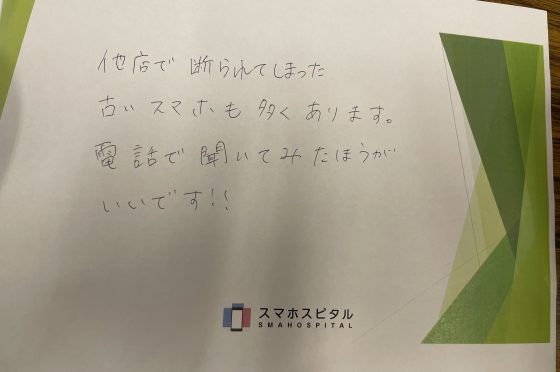 他店で断られてしまった
古いスマホも多くあります。
電話で聞いてみたほうが
いいです!!
スマホスピタル
SMAHOSPITAL